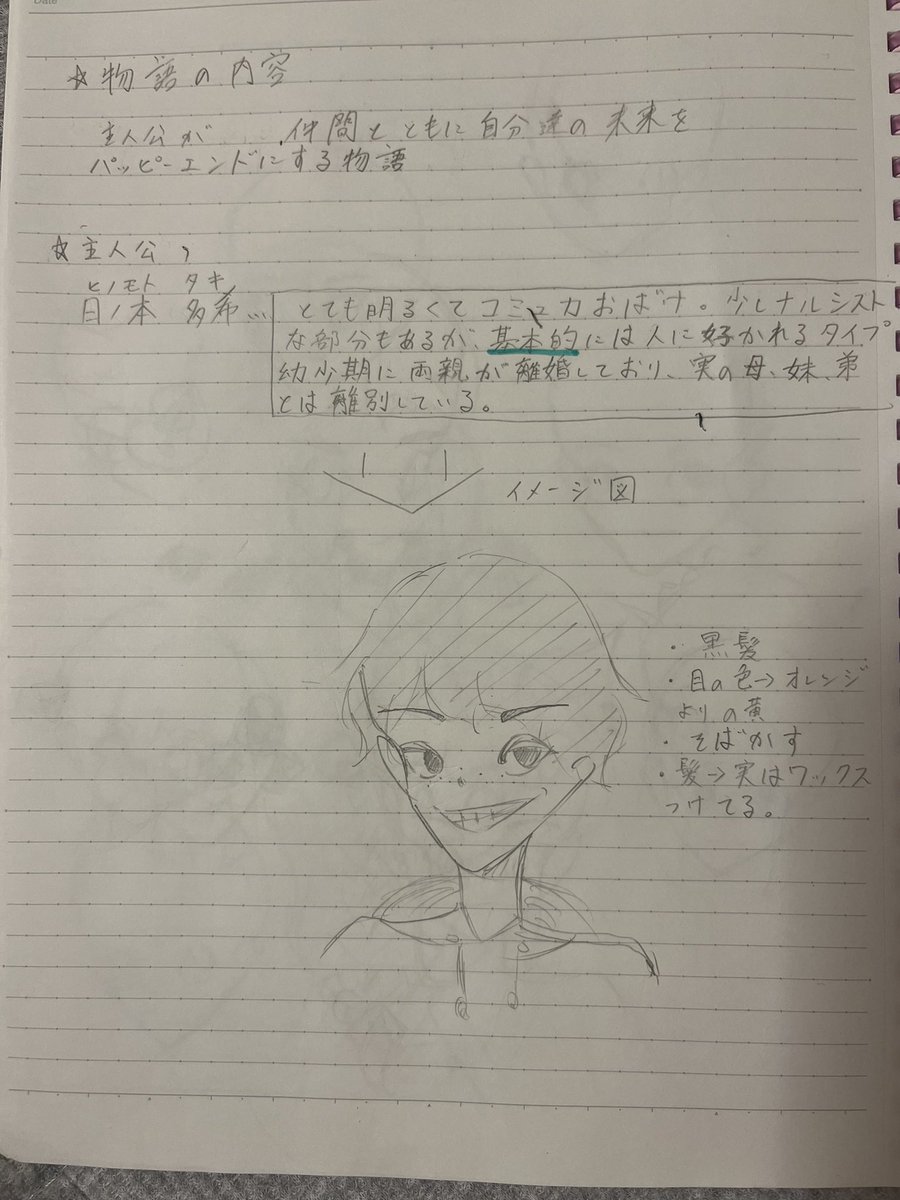 Date
☆物語の内容
主人公が.....仲間とともに自分達の未来を
パッピーエンドにする物語
☆主人公、
ヒノモト タキ
日ノ本 多希...
とても明るくてコミュ力おばけ。少しナルシスト
な部分もあるが、基本的には人に好かれるタイプ
幼少期に両親が離婚しており、実の母、妹、弟
とは離別している。
イメージ図
・黒髪
・目の色→オレンジ
よりの黄
・そばかす
・髪→実はワックス
つけてる。